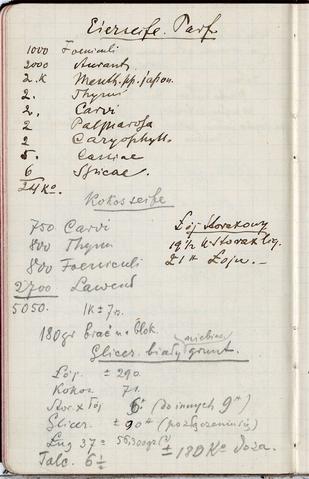 Eierseife. Parf.
1000 Foeniculi
2000 Aurant.
2. K Menth. pp. japon.
2. Thymi
2. Carvi
2 Palmarosa
2 Caryophyll.
5. Cassiae
6 Spicae.
24 Ko.
Kokosseife
750 Carvi
800 Thym
800 Foeniculi
2700 Lawend
5050. 1K ± 7.
Łój Storakowy
19½ K Storaklig.
21 K Łoju. –
180 gr brać na blok.
Glicer. biały grunt.
niebies
Łój. ± 290.
Kokos 71.
Stor. x Łój 6+ (do innych 9+)
Glicer. ± 90+ (po zgoszeniu)
Lug 37 = 56,300 gr (?)
Talc. 6½ ± 180 Ko Doza.